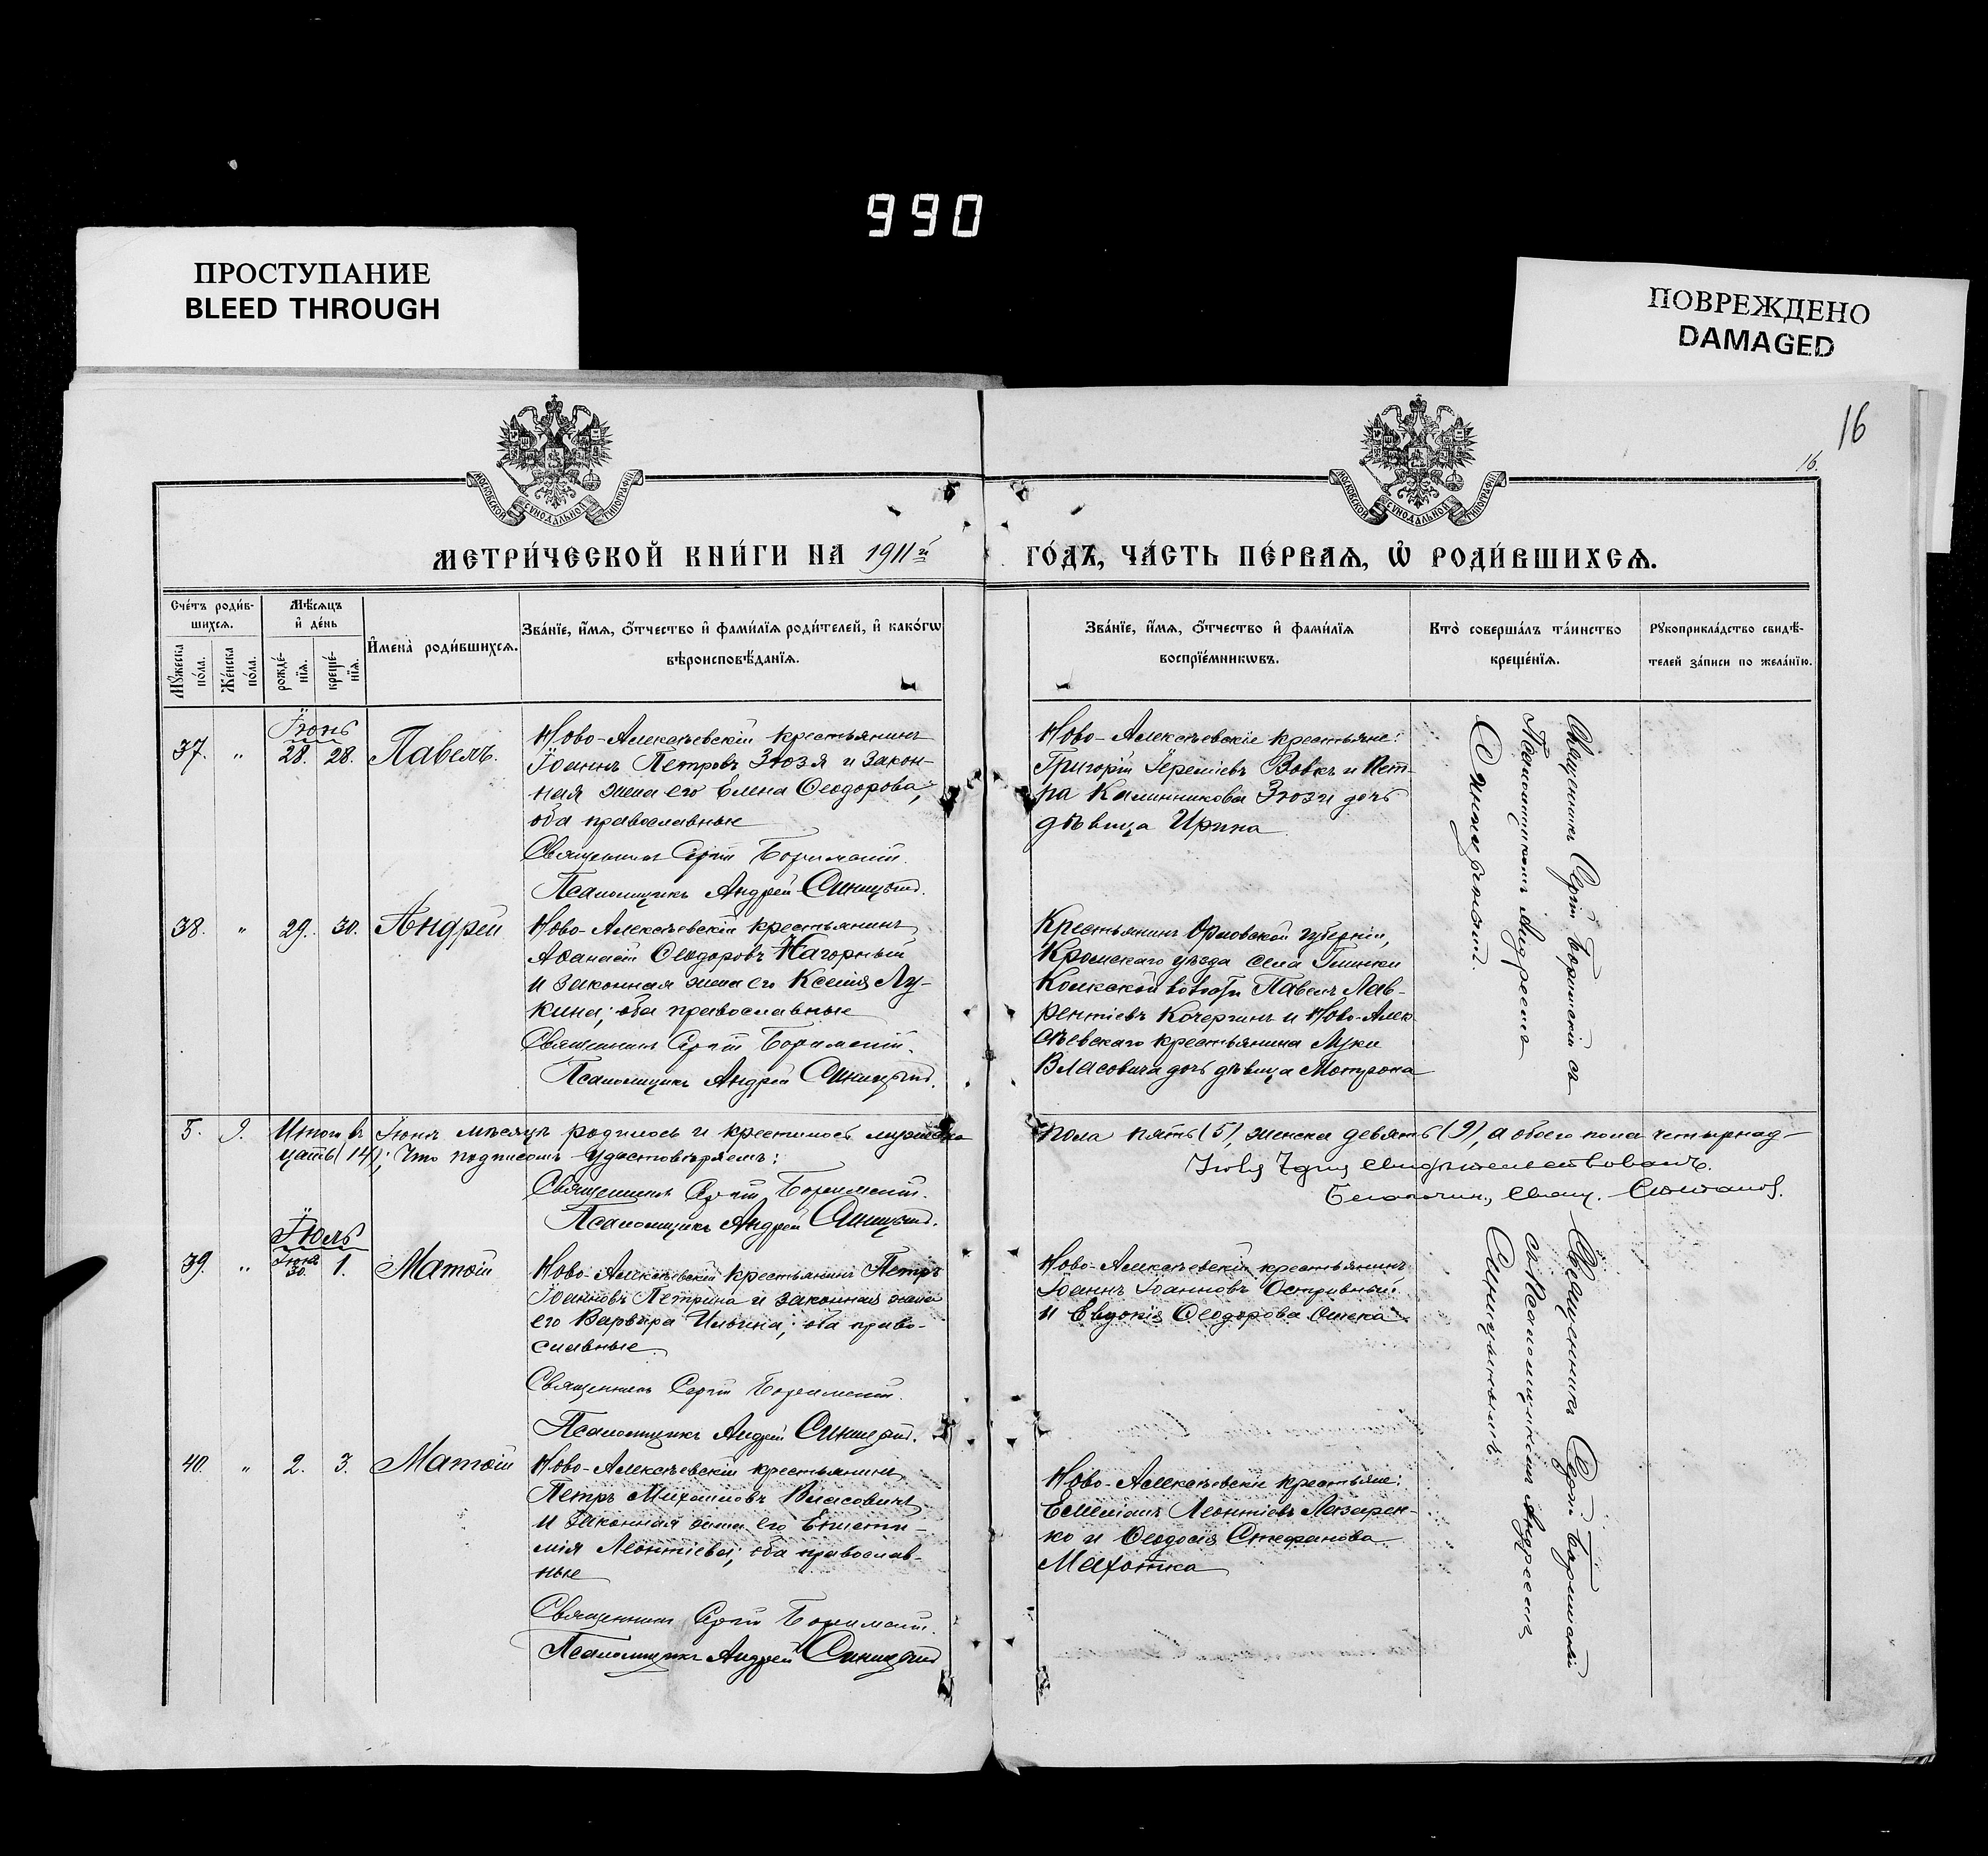 990
ПРОСТУПАНИЕ
BLEED THROUGH
ПОВРЕЖДЕНО
DAMAGED
16
16.
МОСКОВСКОЙ СУНОДАЛЬНОЙ ТИПОГРАФІИ
МОСКОВСКОЙ СУНОДАЛЬНОЙ ТИПОГРАФІИ
МЕТРИ́ЧЕСКОЙ КНИ́ГИ НА 1911й
ГО́ДЪ, ЧА́СТЬ ПЕ́РВАѦ, Ѡ҆ РОДИ́ВШИХСѦ.
Сче́тъ роди́в-
шихсѧ.
Мꙋ́жеска по́ла.
Же́нска по́ла.
Мѣ́сѧцъ
и҆ де́нь
рожде́-
нїѧ.
креще́-
нїѧ.
И҆мена̀ роди́вшихсѧ.
Зва́нїе, и҆́мѧ, ѻ҆́тчество и҆ фами́лїѧ роди́телей, и҆ како́гѡ
вѣроисповѣ́данїѧ.
Зва́нїе, и҆́мѧ, ѻ҆́тчество и҆ фами́лїѧ
воспрїе́мникѡвъ.
Кто̀ соверша́лъ та́инство
креще́нїѧ.
Рꙋкоприкла́дство свидѣ́-
телей за́писи по жела́нїю.
Іюнь
37. " 28. 28. Павелъ.
Ново-Алексѣевскій крестьянинъ
Іоаннъ Петровъ Зюзя и закон-
ная жена его Елена Ѳеодорова,
оба православные
Священникъ Сергій
Псаломщикъ Андрей Синицынъ.
Ново-Алексѣевскіе крестьяне:
Григорій Іереміевъ Вовкъ и Пет-
ра Калинникова Зюзи дочь
дѣвица Ирина
Священникъ Сергій съ
Псаломщикомъ Андреемъ
38. " 29. 30. Андрей
Ново-Алексѣевскій крестьянинъ
Аѳанасій Ѳеодоровъ Нагорный
и законная жена его Ксенія Лу-
кина; оба православные
Священникъ Сергій
Псаломщикъ Андрей Синицынъ.
Крестьянинъ Орловской губерніи,
Кромскаго уѣзда села Глинки
волости Павелъ Лав-
рентіевъ Кочергинъ и Ново-Алек
сѣевскаго крестьянина Луки
Власовича дочь дѣвица Матрона
5. 9. Итого въ Іюнѣ мѣсяцѣ родилось и крестилось мужеска
пола пять (5), женска девять (9), а обоего пола четырнад-
цать (14); Что подписомъ удостовѣряемъ:
свидѣтельствовалъ.
Священникъ Сергій
Благочин., Свящ.
Псаломщикъ Андрей Синицынъ.
Іюль
39. " Іюня 30. 1. Матѳій
Ново-Алексѣевскій крестьянинъ Петръ
Іоанновъ Петрина и законная жена
его Варвара Ильина; оба право-
славные
Священникъ Сергій
Псаломщикъ Андрей Синицынъ.
Ново-Алексѣевскій крестьянинъ
Іоаннъ Іоанновъ Остривный
и Евдокія Ѳеодорова
Священникъ Сергій
съ Псаломщикомъ Андреемъ
Синицынымъ
40. " 2. 3. Матѳій
Ново-Алексѣевскій крестьянинъ
Петръ Михаиловъ Власовичъ
и законная жена его Еписти-
мія Леонтіева; оба православ-
ные
Священникъ Сергій
Псаломщикъ Андрей Синицынъ
Ново-Алексѣевскіе крестьяне:
Емеліанъ Леонтіевъ Лазарен-
ко и Ѳеодосія Стефанова
Махотка